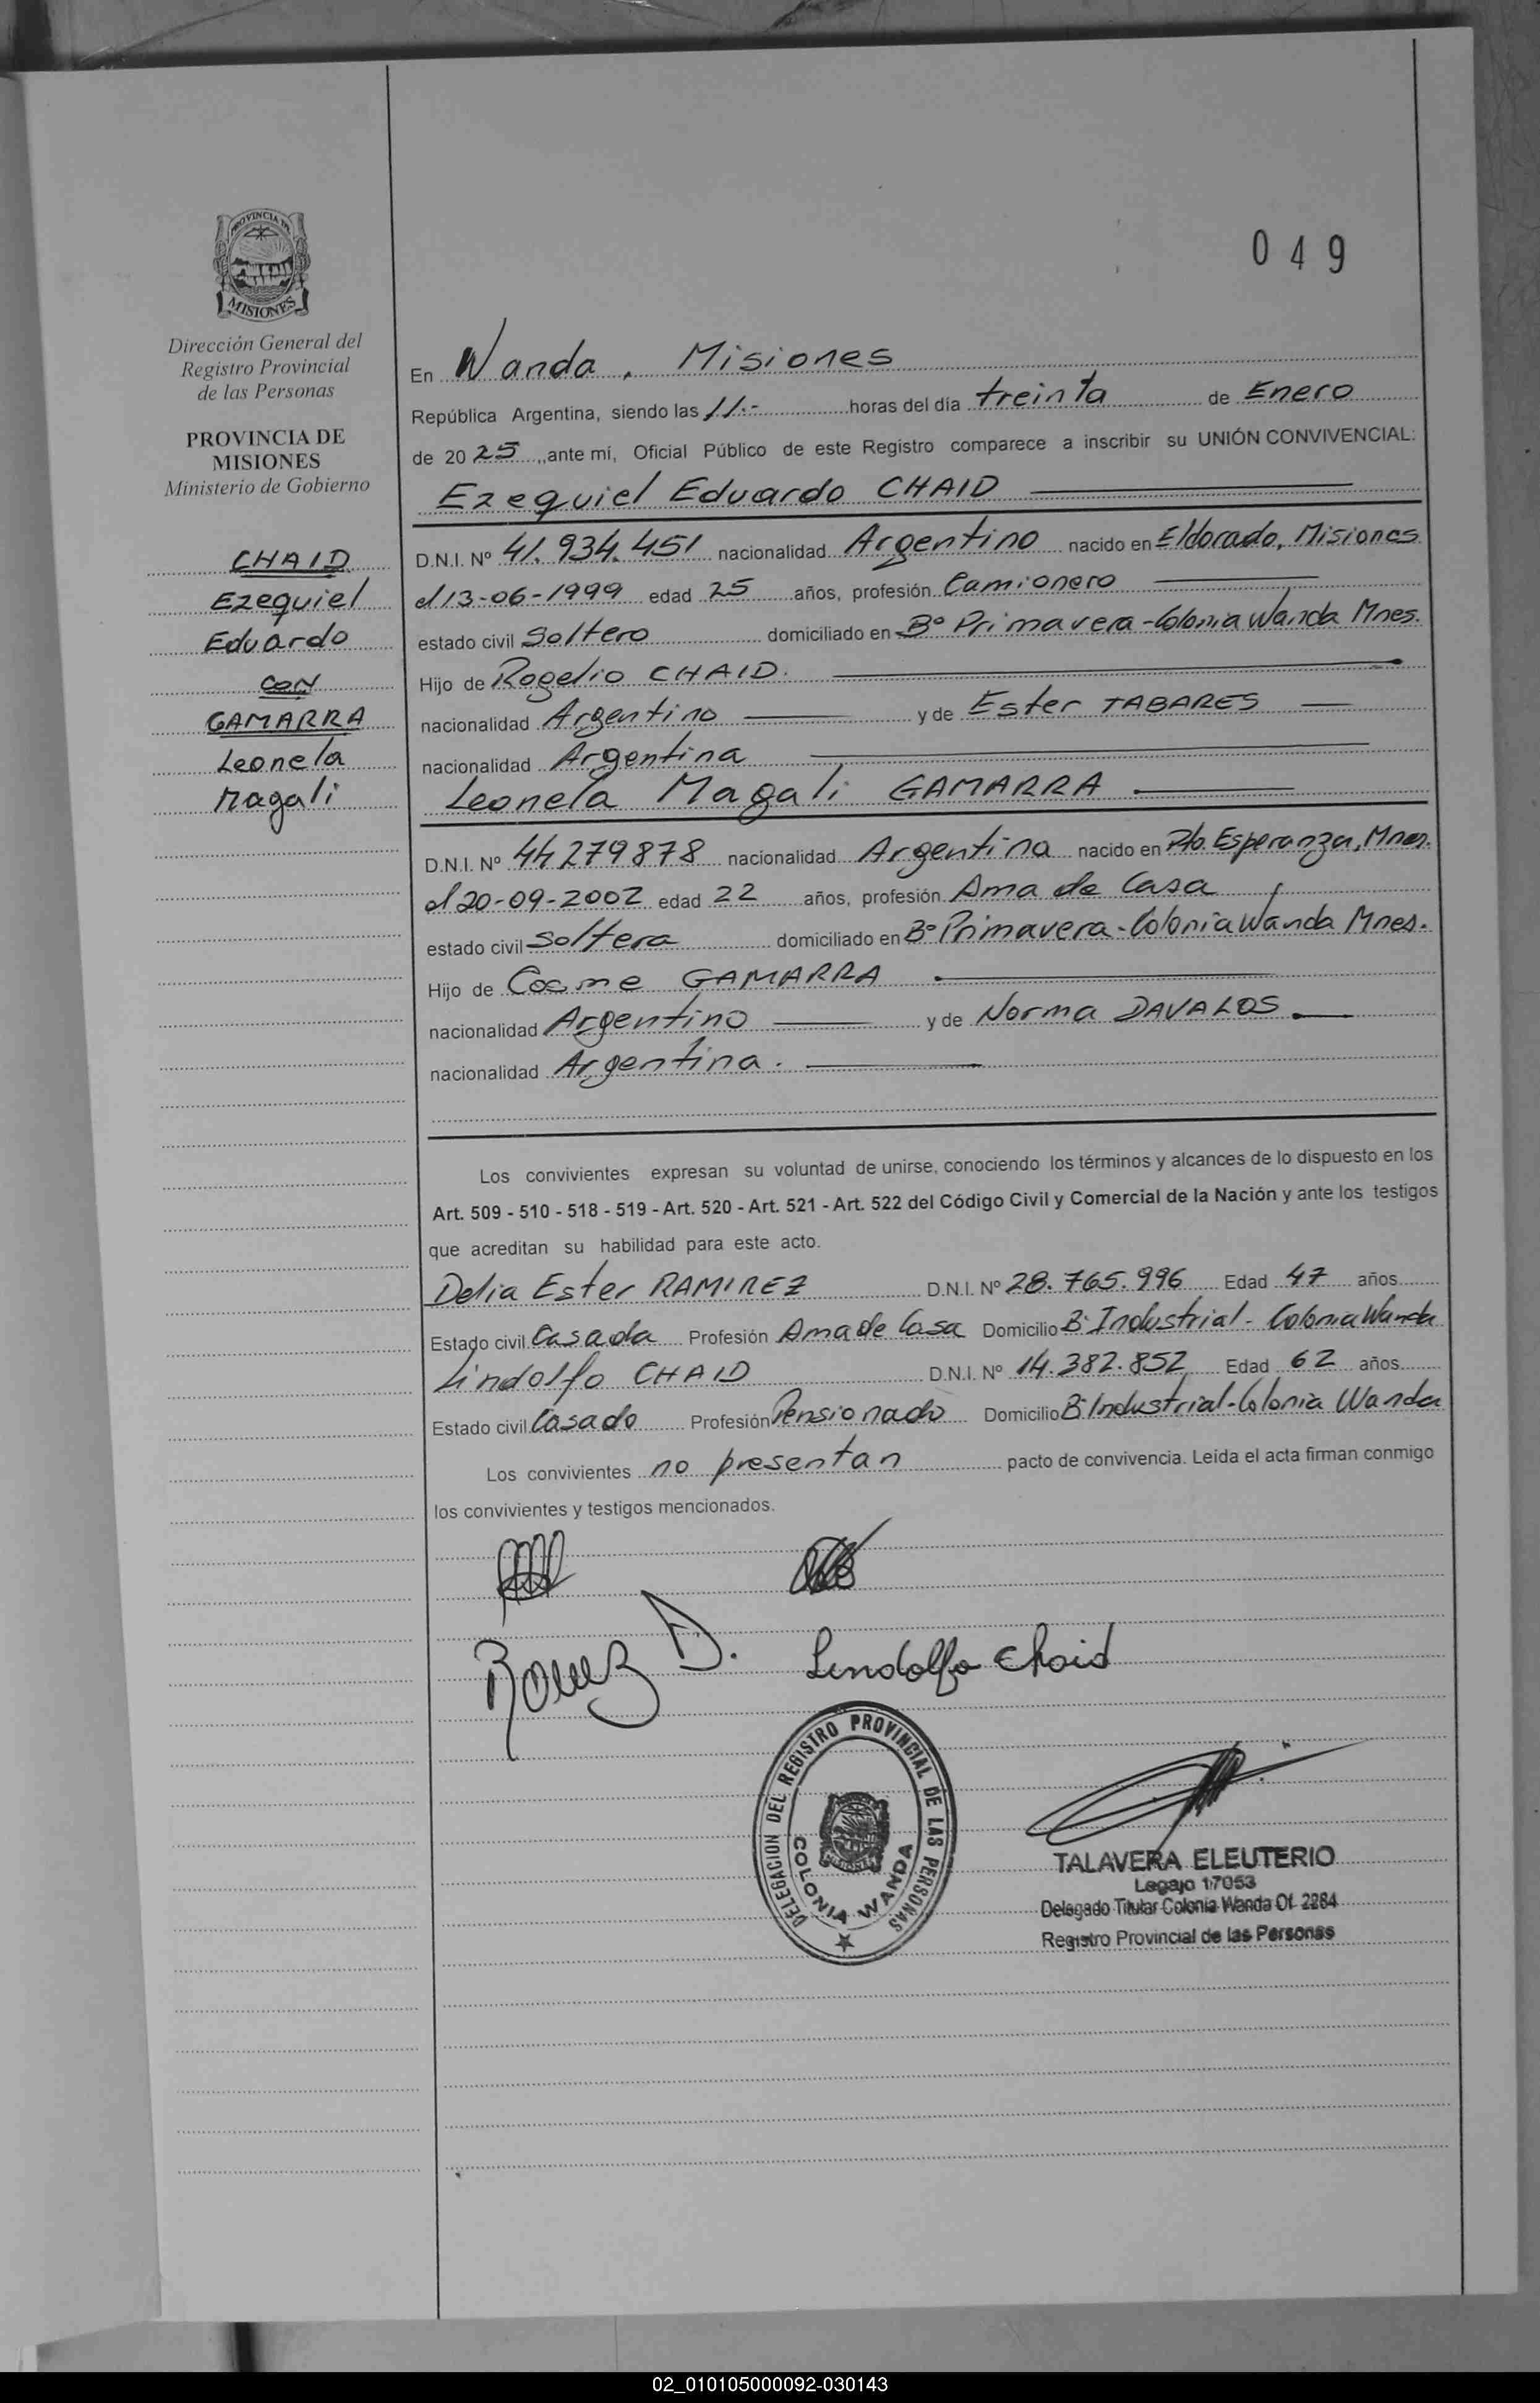 049
PROVINCIA DE
MISIONES
Dirección General del
Registro Provincial
de las Personas
PROVINCIA DE
MISIONES
Ministerio de Gobierno
CHAID
Ezequiel
Eduardo
con
GAMARRA
Leonela
Magali
En Wanda, Misiones
República Argentina, siendo las 11.- horas del día treinta de Enero
de 2025, ante mí, Oficial Público de este Registro comparece a inscribir su UNIÓN CONVIVENCIAL:
Ezequiel Eduardo CHAID
D.N.I. Nº 41.934.451 nacionalidad Argentino nacido en Eldorado, Misiones
el 13-06-1999 edad 25 años, profesión Camionero
estado civil Soltero domiciliado en Bº Primavera-Colonia Wanda Mnes.
Hijo de Rogelio CHAID.
nacionalidad Argentino y de Ester TABARES
nacionalidad Argentina
Leonela Magali GAMARRA
D.N.I. Nº 44279878 nacionalidad Argentina nacido en Pto. Esperanza, Mnes.
el 20-09-2002 edad 22 años, profesión Ama de Casa
estado civil Soltera domiciliado en Bº Primavera-Colonia Wanda Mnes.
Hijo de Cosme GAMARRA
nacionalidad Argentino y de Norma DAVALOS
nacionalidad Argentina.
Los convivientes expresan su voluntad de unirse, conociendo los términos y alcances de lo dispuesto en los
Art. 509 - 510 - 518 - 519 - Art. 520 - Art. 521 - Art. 522 del Código Civil y Comercial de la Nación y ante los testigos
que acreditan su habilidad para este acto.
Delia Ester RAMIREZ D.N.I. Nº 28.765.996 Edad 47 años
Estado civil Casada Profesión Ama de Casa Domicilio Bº Industrial - Colonia Wanda
Lindolfo CHAID D.N.I. Nº 14.382.852 Edad 62 años
Estado civil Casado Profesión Pensionado Domicilio Bº Industrial-Colonia Wanda
Los convivientes no presentan pacto de convivencia. Leída el acta firman conmigo
los convivientes y testigos mencionados.
D. Lindolfo Chaid
DELEGACION DEL REGISTRO PROVINCIAL DE LAS PERSONAS
COLONIA WANDA
TALAVERA ELEUTERIO
Legajo 17053
Delegado Titular Colonia Wanda Of. 2284
Registro Provincial de las Personas
02_010105000092-030143